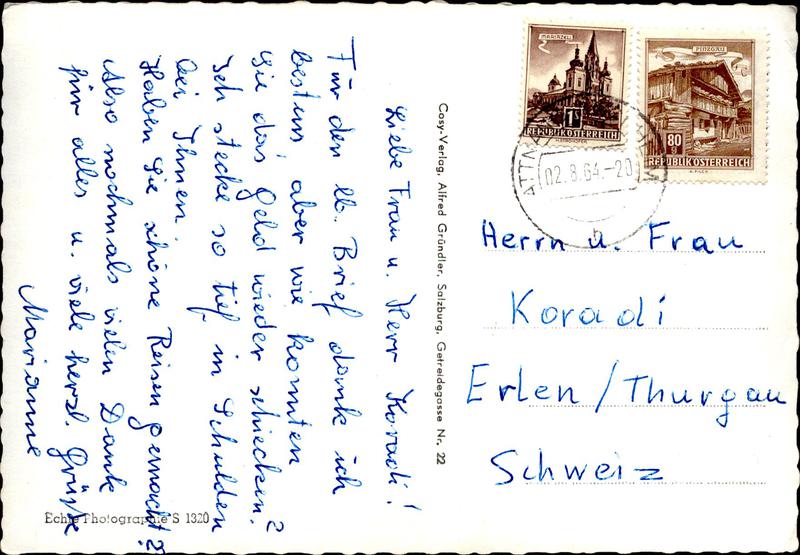 Liebe Frau u. Herr Koradi!
Für den lb. Brief dank ich
bestens, aber wie konnten
Sie das Geld wieder schicken?
Ich stecke so tief in Schulden
bei Ihnen.
Haben Sie schöne Reisen gemacht?
Also nochmals vielen Dank
für alles u. viele herzl. Grüsse
Marianne
Echte Photographie S 1320
Cosy-Verlag, Alfred Gründler, Salzburg, Getreidegasse Nr. 22
MARIAZELL
1 S
REPUBLIK ÖSTERREICH
PINZGAU
80 g
REPUBLIK ÖSTERREICH
02.8.64.-20
Herrn u. Frau
Koradi
Erlen / Thurgau
Schweiz